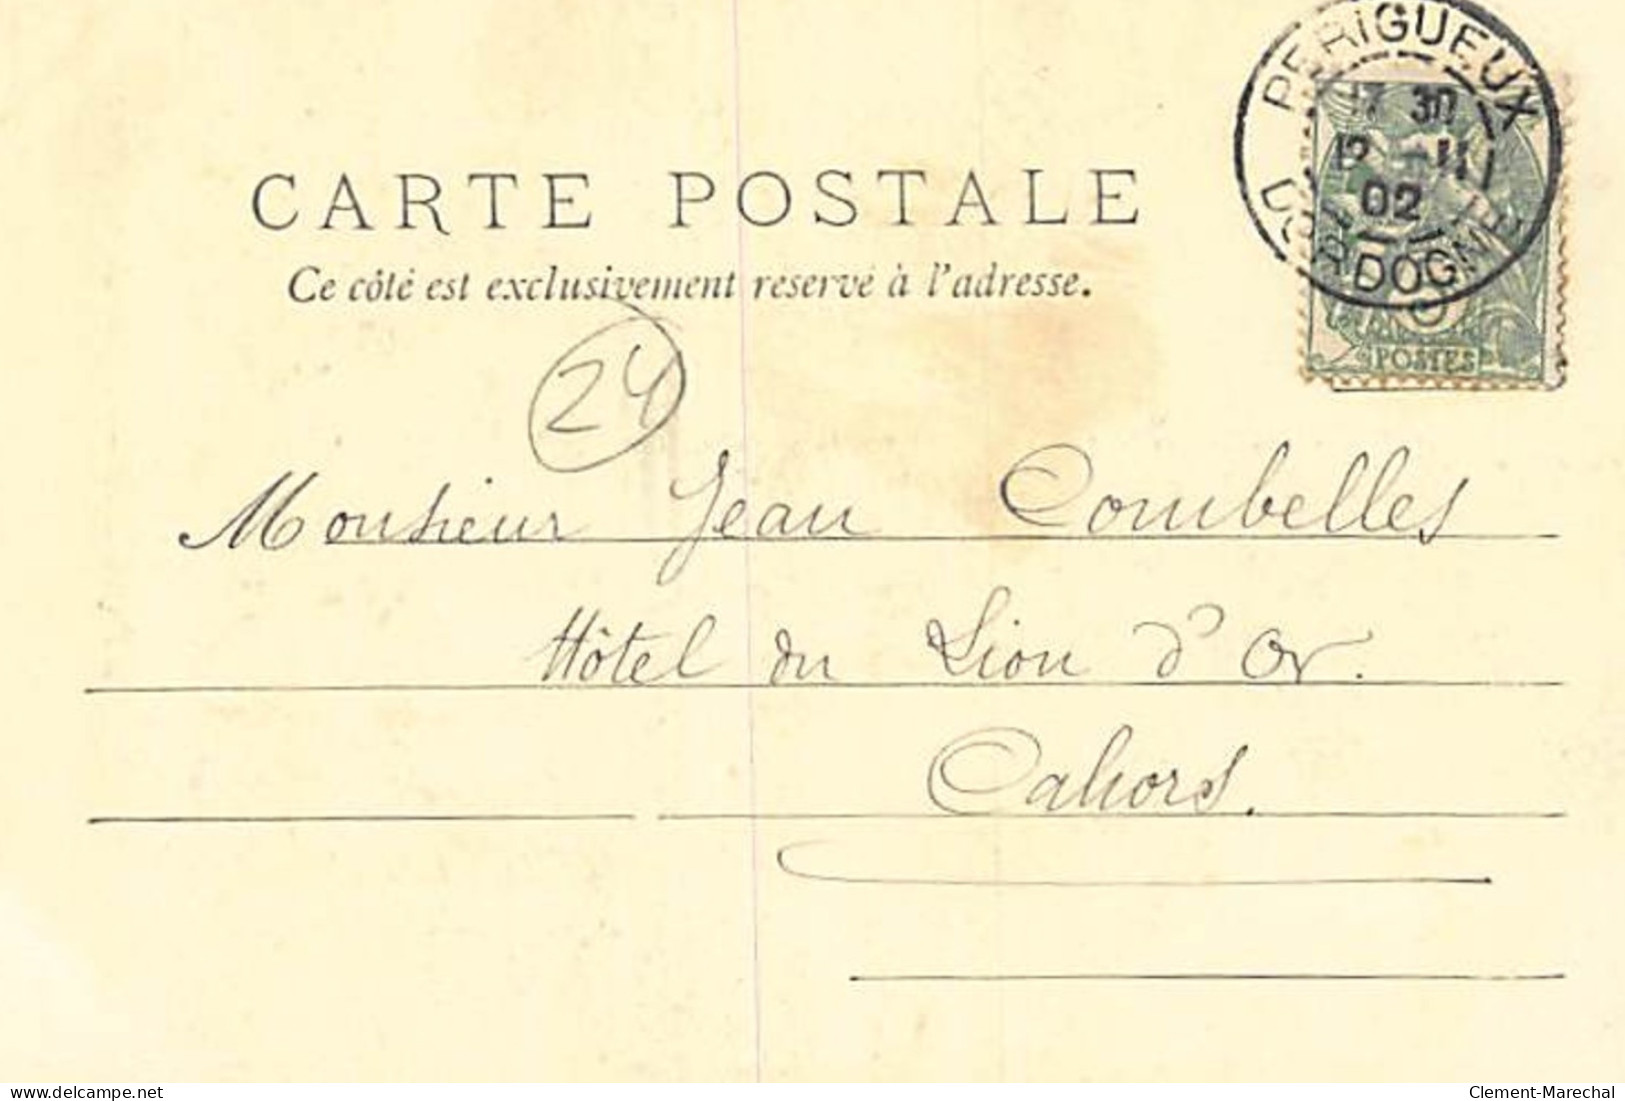 PERIGUEUX
17 30
12 -11
02
DORDOGNE
POSTES
CARTE POSTALE
Ce côté est exclusivement réservé à l'adresse.
24
Monsieur Jean Combelles
Hôtel du Lion d'Or.
Cahors.
delcampe.net
Clement-Marechal